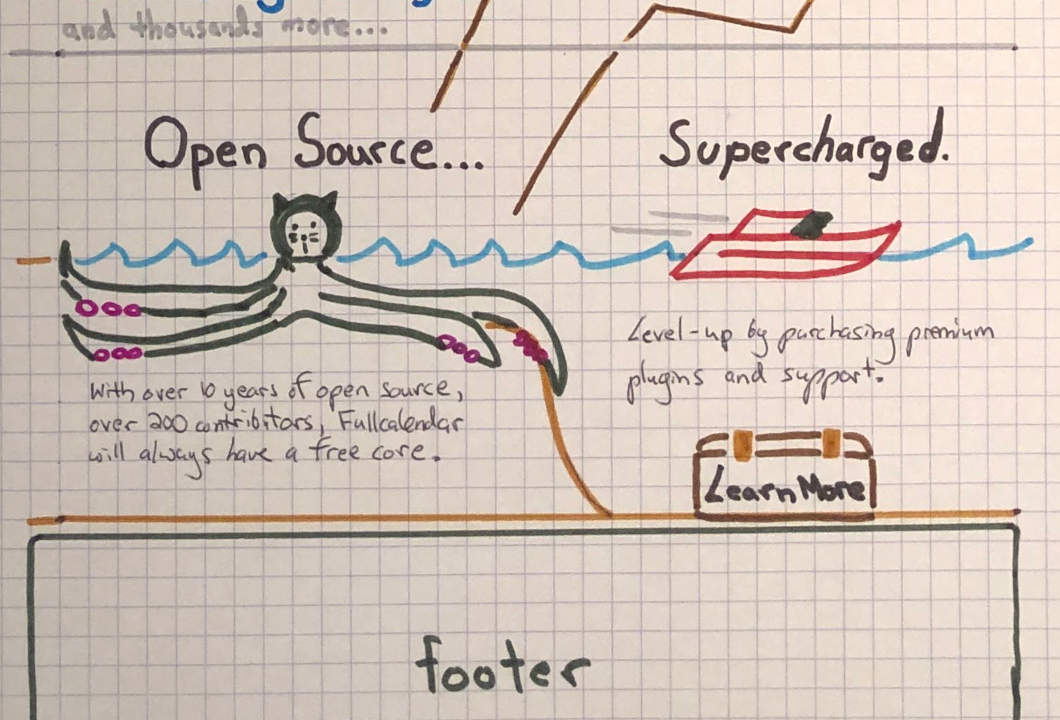 and thousands more...
Open Source...
Supercharged.
With over 10 years of open source,
over 200 contribitors, Fullcalendar
will always have a free core.
Level-up by purchasing premium
plugins and support.
Learn More
footer